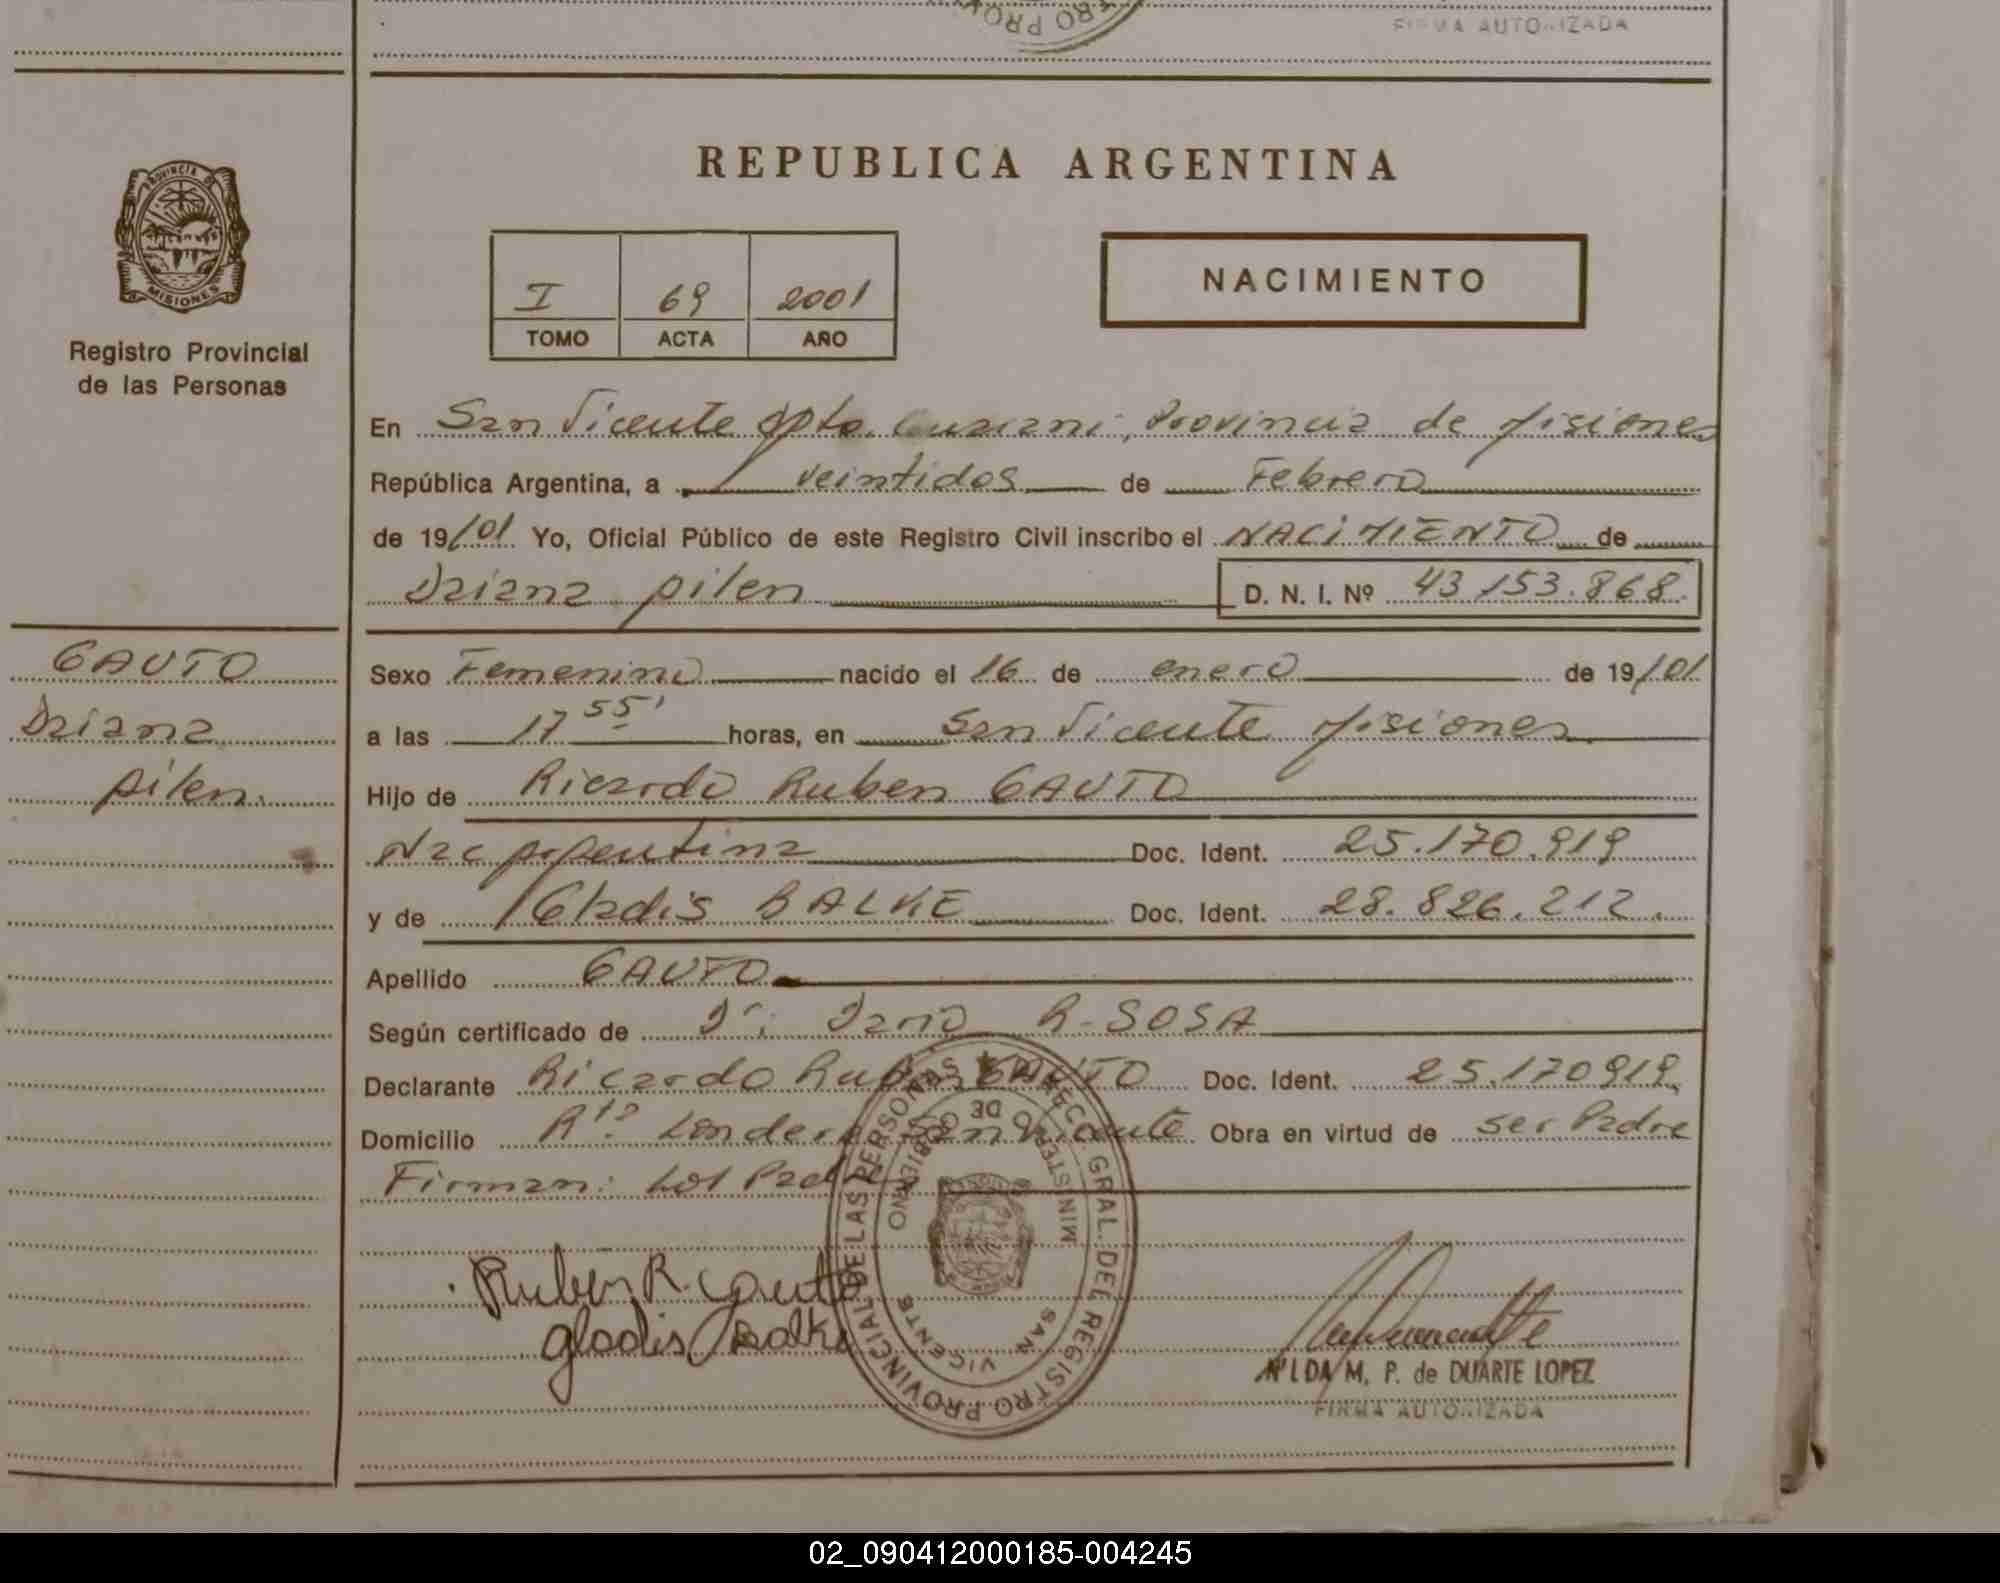 FIRMA AUTORIZADA
REPUBLICA ARGENTINA
PROVINCIA DE
MISIONES
Registro Provincial
de las Personas
I 69 2001
TOMO ACTA AÑO
NACIMIENTO
En San Vicente Dpto. Guarani, Provincia de Misiones
República Argentina, a veintidos de Febrero
de 19/01 Yo, Oficial Público de este Registro Civil inscribo el NACIMIENTO de
Daiana pilen D. N. I. Nº 43 153.868.
GAUTO
Daiana
pilen.
Sexo Femenino nacido el 16 de enero de 19/01
a las 17 55' horas, en San Vicente Misiones
Hijo de Ricardo Ruben GAUTO
Nac Argentina Doc. Ident. 25.170.919
y de Gladis BALKE Doc. Ident. 28.826.212.
Apellido GAUTO
Según certificado de Dr: Dario R. SOSA
Declarante Ricardo Ruben GAUTO Doc. Ident. 25.170919.
Domicilio San Vicente Obra en virtud de ser Padre
Firman: Los Padres
Ruben R. Gauto
gladis Balke
DIRECC. GRAL. DEL REGISTRO PROVINCIAL DE LAS PERSONAS
MINISTERIO DE GOBIERNO
SAN VICENTE
NILDA M. P. de DUARTE LOPEZ
FIRMA AUTORIZADA
02_090412000185-004245